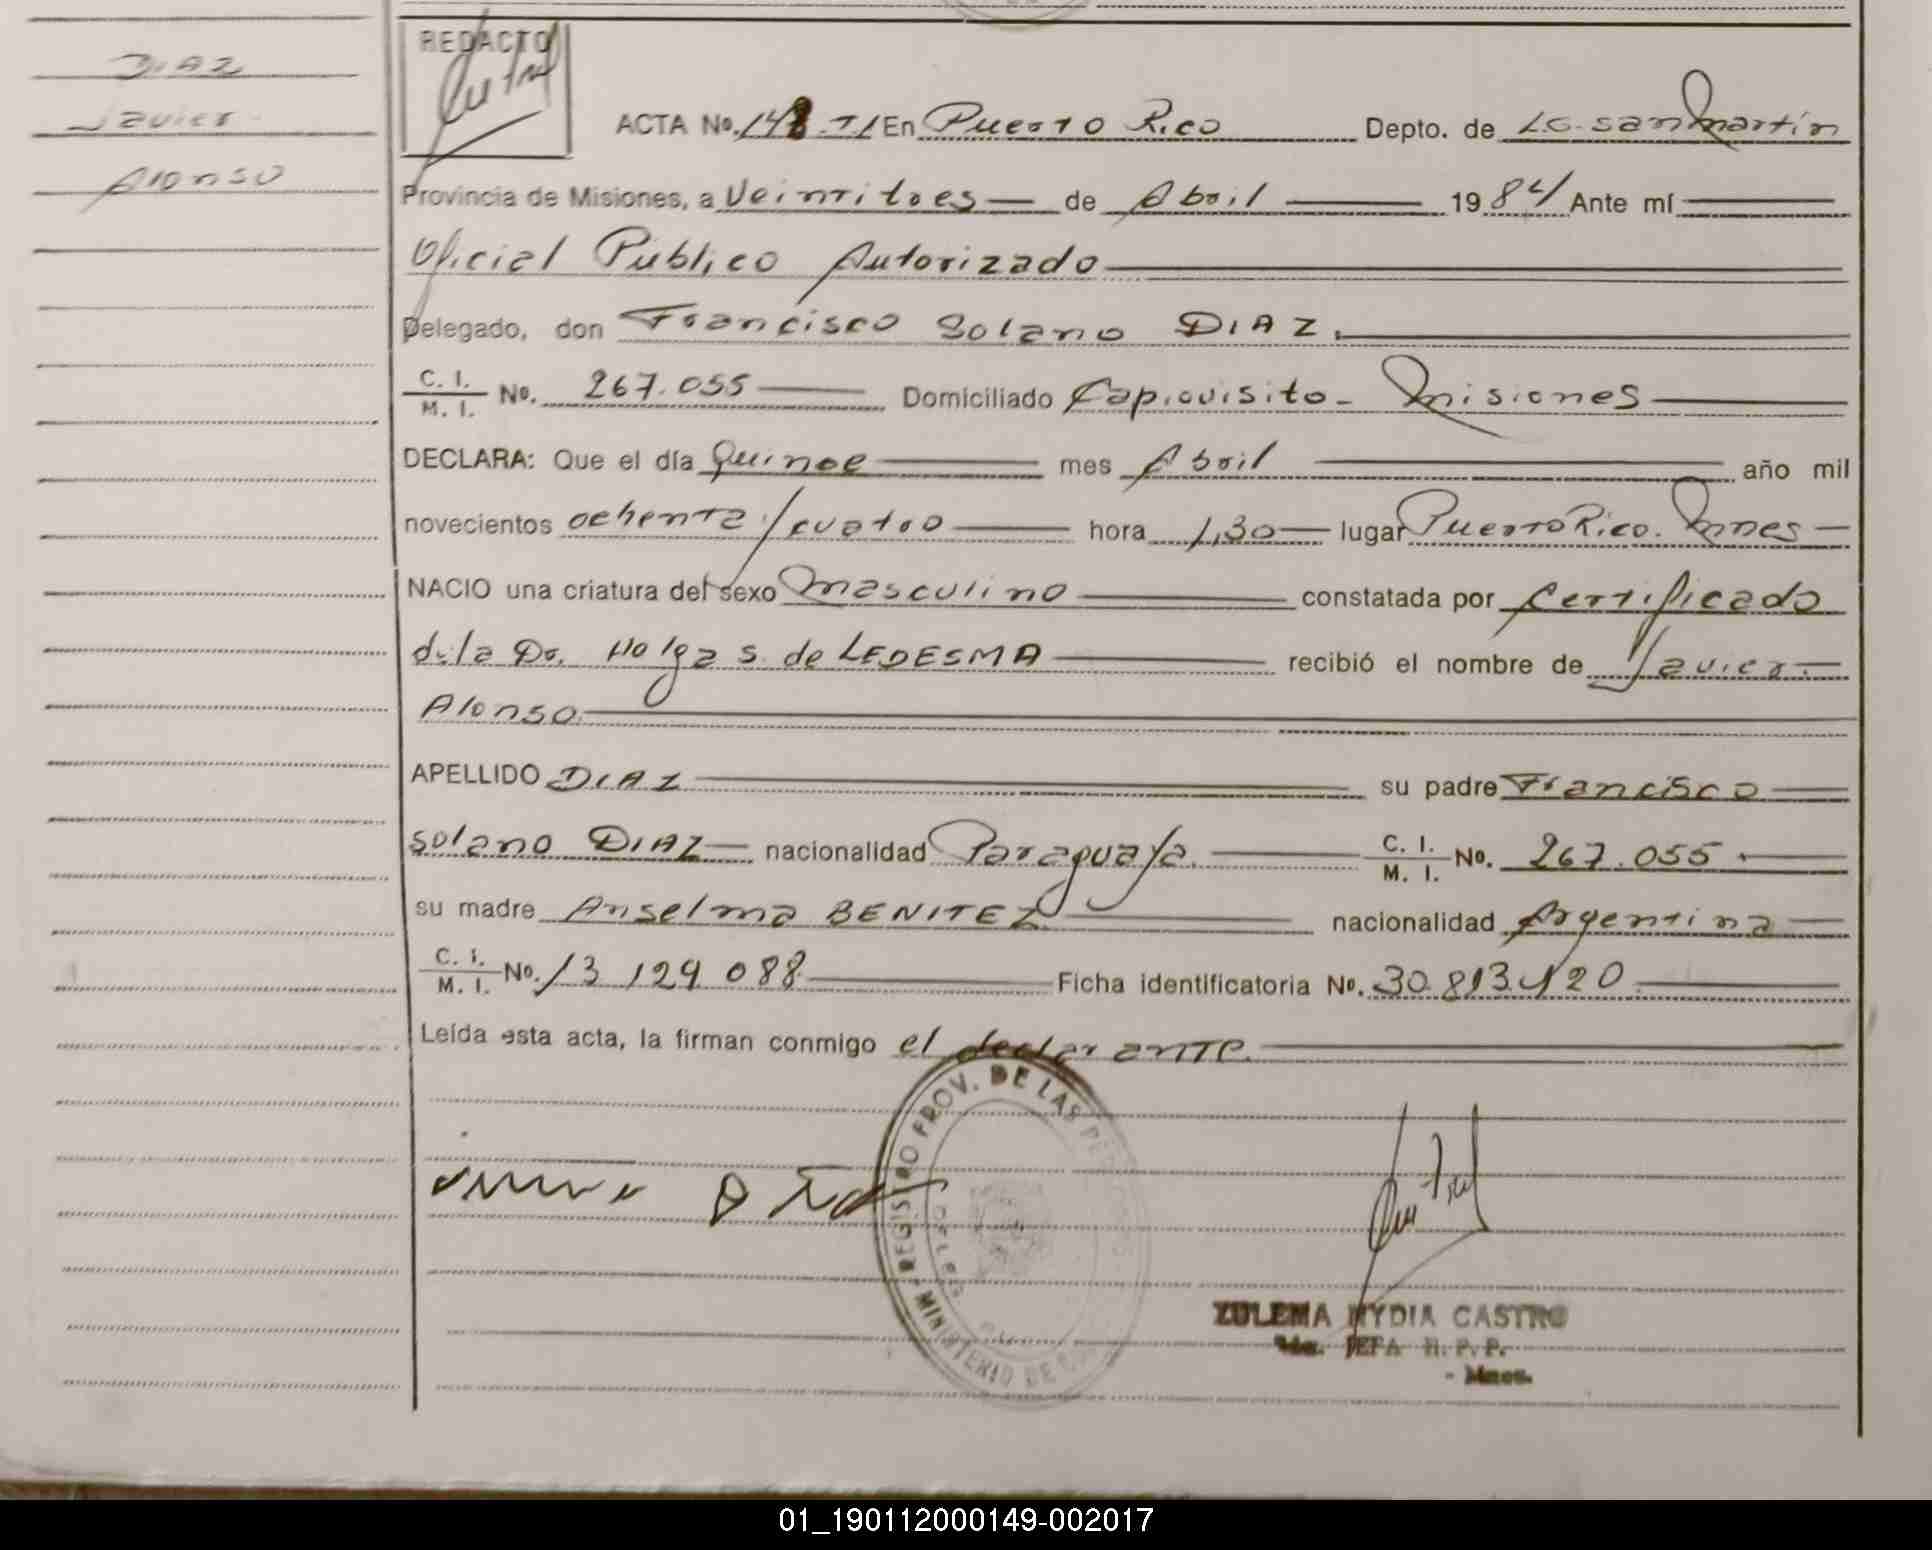 DIAZ
Javier
Alonso
REDACTO
ACTA No. 148 T I En Puerto Rico Depto. de L.G. San Martín
Provincia de Misiones, a Veintitres de Abril 1984 Ante mí
Oficial Público Autorizado
Delegado, don Francisco Solano DIAZ.
C. I. / M. I. No. 267.055 Domiciliado Capiovisito - Misiones
DECLARA: Que el día Quince mes Abril año mil
novecientos ochenta y cuatro hora 1,30 lugar Puerto Rico. Mnes
NACIO una criatura del sexo masculino constatada por Certificado
de la Dr. Holga S. de LEDESMA recibió el nombre de Javier
Alonso
APELLIDO DIAZ su padre Francisco
Solano DIAZ nacionalidad Paraguaya. C. I. / M. I. No. 267.055
su madre Anselma BENITEZ nacionalidad Argentina
C. I. / M. I. No. 13 129 088 Ficha identificatoria No. 30.813.420
Leída esta acta, la firman conmigo el declarante.
REGISTRO PROV. DE LAS PERSONAS
MINISTERIO DE
ZULEMA NYDIA CASTRO
JEFA R. P. P.
- Mnes.
01_190112000149-002017